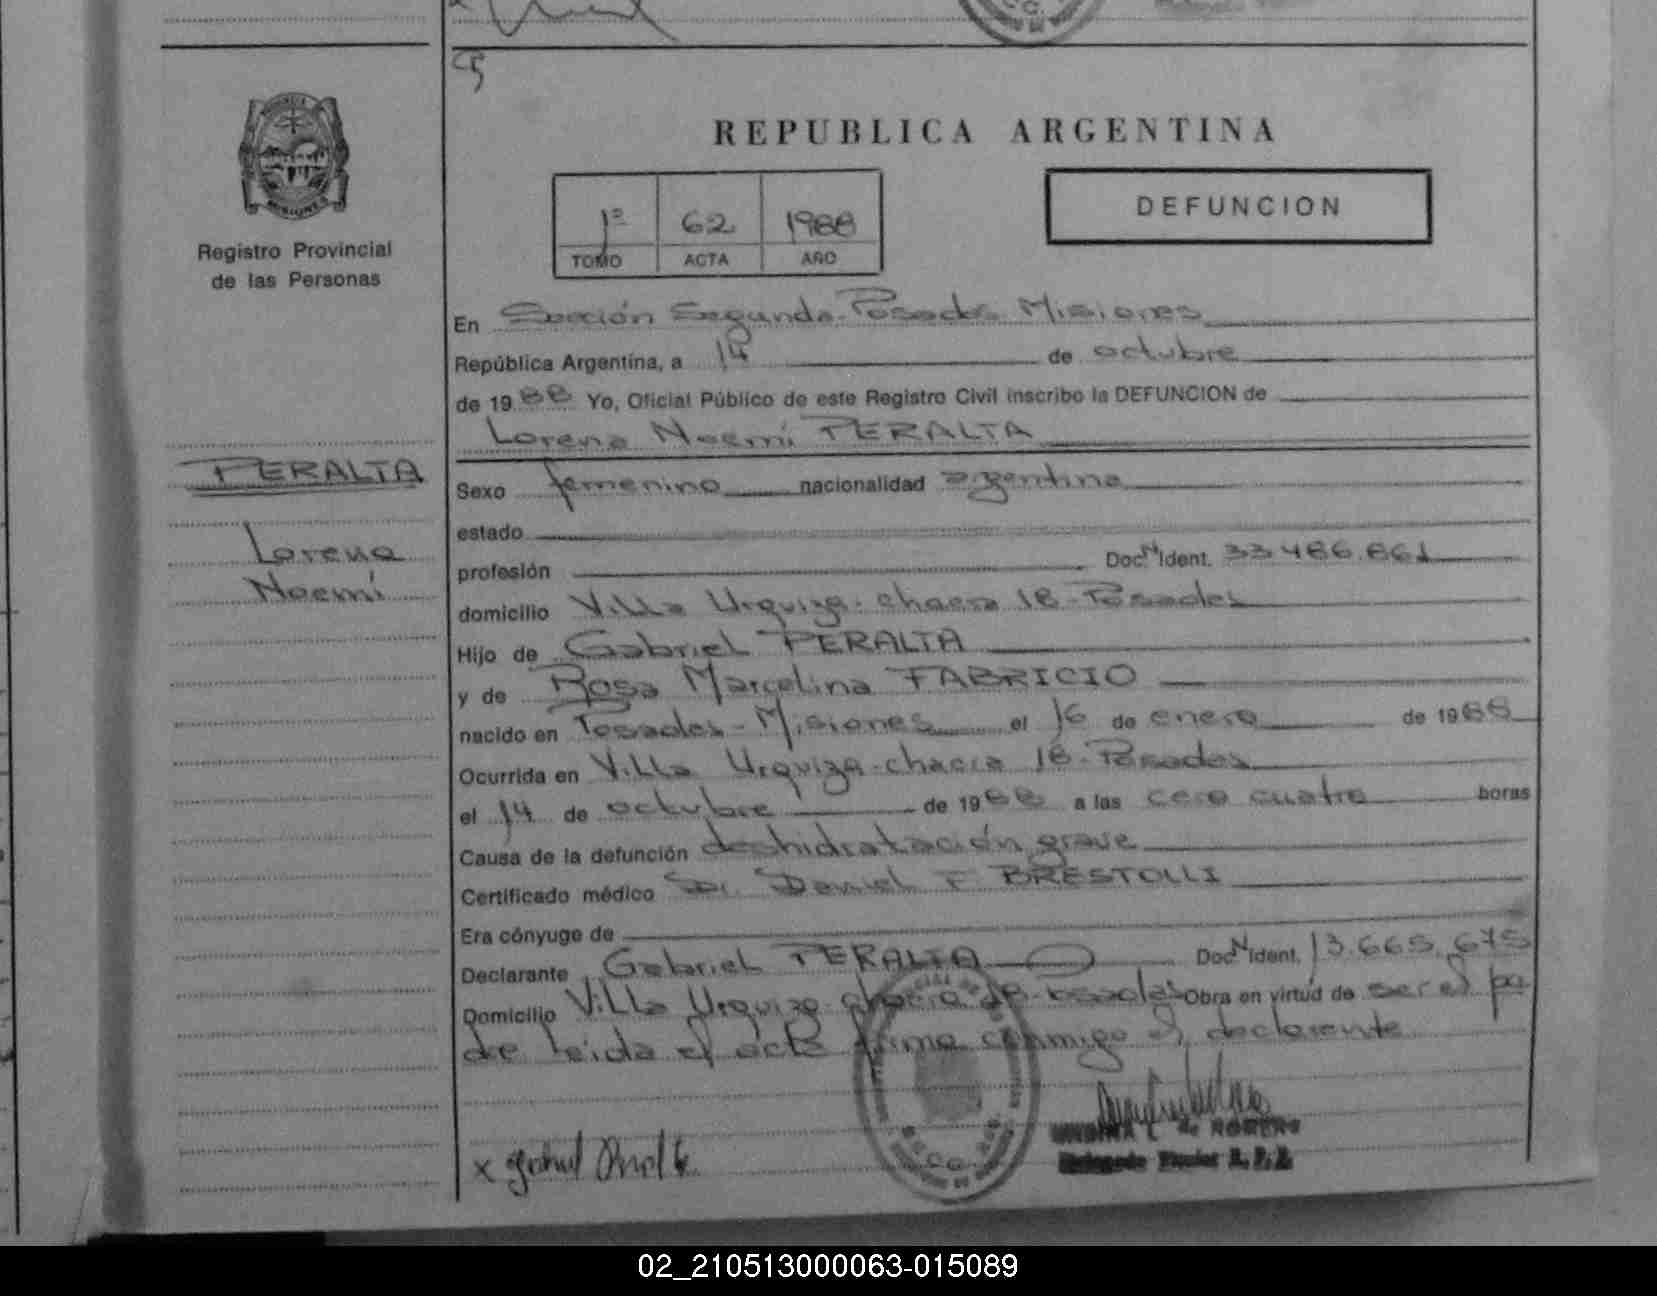 REPUBLICA ARGENTINA
DEFUNCION
1º 62 1988
TOMO ACTA AÑO
Registro Provincial
de las Personas
MISIONES
PERALTA
Lorena
Noemí
En Sección Segunda-Posadas Misiones
República Argentina, a 14 de octubre
de 1988 Yo, Oficial Público de este Registro Civil inscribo la DEFUNCION de
Lorena Noemí PERALTA
Sexo femenino nacionalidad argentina
estado
profesión Doc. N Ident. 33.486.861
domicilio Villa Urquiza-chacra 18-Posadas
Hijo de Gabriel PERALTA
y de Rosa Marcelina FABRICIO
nacido en Posadas-Misiones el 16 de enero de 1988
Ocurrida en Villa Urquiza-chacra 18-Posadas
el 14 de octubre de 1988 a las cero cuatro horas
Causa de la defunción deshidratación grave
Certificado médico Dr. Daniel F BRESTOLLI
Era cónyuge de
Declarante Gabriel PERALTA Doc. N Ident. 13.665.675
Domicilio Villa Urquiza-chacra 18-Posadas Obra en virtud de ser el pa
dre leida el acta firma conmigo el declarante
de ROMERO
02_210513000063-015089